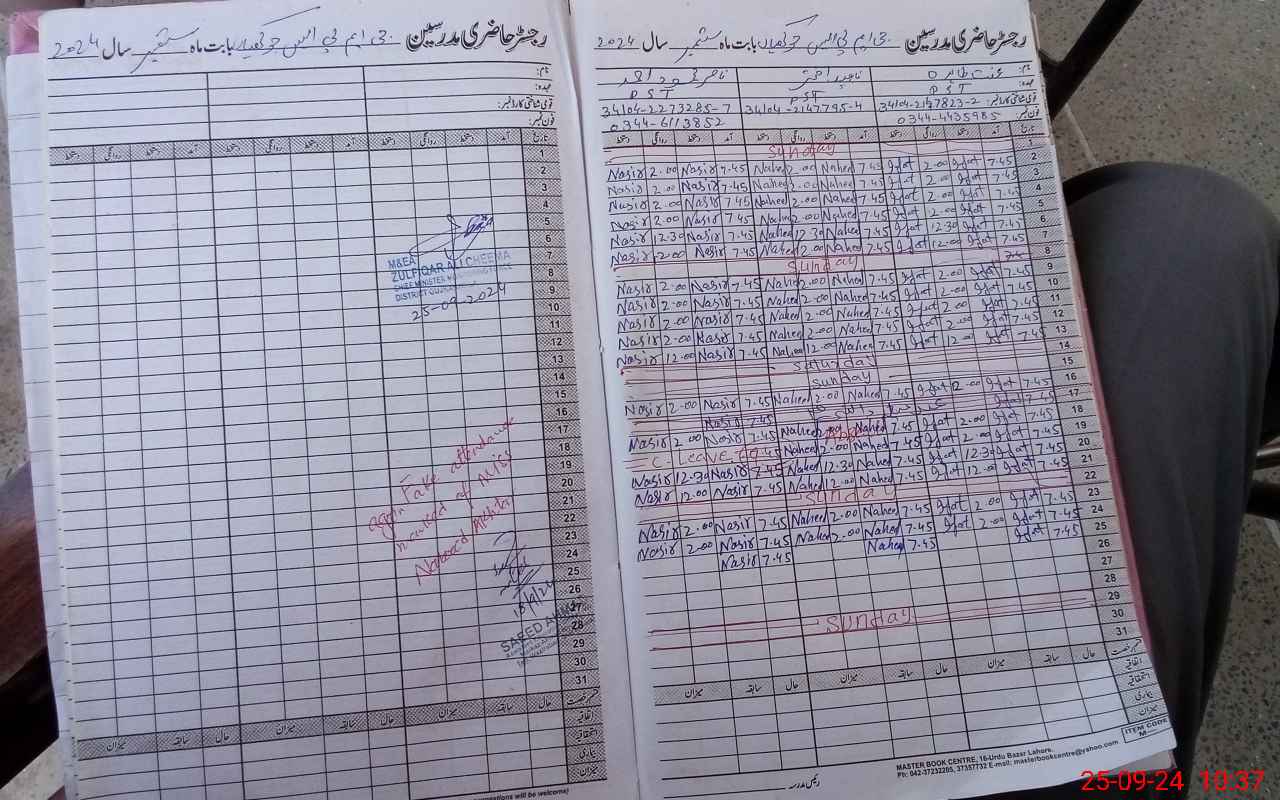 رجسٹر حاضری مدرسین جی ایم پی ایس جوکھیاں بابت ماہ ستمبر سال 2024
نام:
عہدہ:
قومی شناختی کارڈ نمبر:
فون نمبر:
تاریخ آمد دستخط روانگی دستخط آمد دستخط روانگی دستخط آمد دستخط روانگی دستخط
1
2
3
4
5
6
7
8
9
10
11
12
13
14
15
16
17
18
19
20
21
22
23
24
25
26
27
28
29
30
31
M&EA
ZULFIQAR ALI CHEEMA
CHIEF MINISTER MONITORING FORCE
25-09-2024
again Fake attendance
marked of Miss
SAEED
قسم رخصت حال سابقہ میزان حال سابقہ میزان حال سابقہ میزان
اتفاقیہ
استحقاقیہ
بیماری
میزان
رجسٹر حاضری مدرسین جی ایم پی ایس جوکھیاں بابت ماہ ستمبر سال 2024
نام: عفت طاہرہ ناہید اختر ناصر محمود احمد
عہدہ: PST PST PST
قومی شناختی کارڈ نمبر: 34104-2147823-2 34104-2147795-4 34104-2273285-7
فون نمبر: 0344-4435985 0344-6113852
تاریخ آمد دستخط روانگی دستخط آمد دستخط روانگی دستخط آمد دستخط روانگی دستخط
Sunday 1
Nasir 2.00 Nasir 7.45 Naheed 2.00 Naheed 7.45 Ifat 2.00 Ifat 7.45 2
Nasir 2.00 Nasir 7.45 Naheed 2.00 Naheed 7.45 Ifat 2.00 Ifat 7.45 3
Nasir 2.00 Nasir 7.45 Naheed 2.00 Naheed 7.45 Ifat 2.00 Ifat 7.45 4
Nasir 2.00 Nasir 7.45 Naheed 2.00 Naheed 7.45 Ifat 2.00 Ifat 7.45 5
Nasir 12.30 Nasir 7.45 Naheed 12.30 Naheed 7.45 Ifat 12.30 Ifat 7.45 6
Nasir 2.00 Nasir 7.45 Naheed 2.00 Naheed 7.45 Ifat 12.00 Ifat 7.45 7
Sunday 8
Nasir 2.00 Nasir 7.45 Naheed 2.00 Naheed 7.45 Ifat 2.00 Ifat 7.45 9
Nasir 2.00 Nasir 7.45 Naheed 2.00 Naheed 7.45 Ifat 2.00 Ifat 7.45 10
Nasir 2.00 Nasir 7.45 Naheed 2.00 Naheed 7.45 Ifat 2.00 Ifat 7.45 11
Nasir 2.00 Nasir 7.45 Naheed 2.00 Naheed 7.45 Ifat 2.00 Ifat 7.45 12
Nasir 12.00 Nasir 7.45 Naheed 12.00 Naheed 7.45 Ifat 12.00 Ifat 7.45 13
Saturday 14
Sunday 15
Nasir 2.00 Nasir 7.45 Naheed 2.00 Naheed 7.45 Ifat 2.00 Ifat 7.45 16
Nasir 7.45 Ifat 7.45 17
Nasir 2.00 Nasir 7.45 Naheed 2.00 Naheed 7.45 Ifat 2.00 Ifat 7.45 18
C. Leave 7.45 Naheed 2.00 Naheed 7.45 Ifat 2.00 Ifat 7.45 19
Nasir 12.30 Nasir 7.45 Naheed 12.30 Naheed 7.45 Ifat 12.30 Ifat 7.45 20
Nasir 12.00 Nasir 7.45 Naheed 2.00 Naheed 7.45 Ifat 12.00 Ifat 7.45 21
Sunday 22
Nasir 2.00 Nasir 7.45 Naheed 2.00 Naheed 7.45 Ifat 2.00 Ifat 7.45 23
Nasir 2.00 Nasir 7.45 Naheed 2.00 Naheed 7.45 Ifat 2.00 Ifat 7.45 24
Nasir 7.45 Naheed 7.45 Ifat 7.45 25
26
27
28
Sunday 29
30
31
قسم رخصت حال سابقہ میزان حال سابقہ میزان حال سابقہ میزان
اتفاقیہ
استحقاقیہ
بیماری
میزان
ITEM CODE
M—
MASTER BOOK CENTRE, 16-Urdu Bazar Lahore.
Ph: 042-37232205, 37357732 E-mail: masterbookcentre@yahoo.com
رئیس مدرسہ
25-09-24 10:37